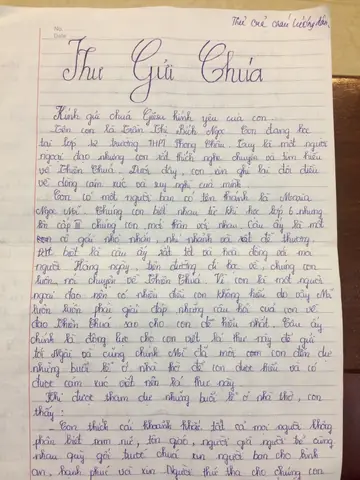 No.
Date
Thư của cháu
Thư Gửi Chúa
Kính gửi chúa Giêsu kính yêu của con...
Tên con là Trần Thị Bích Ngọc. Con đang học
tại lớp trường THPT Phong Châu. Tuy là một người
ngoại đạo nhưng con rất thích nghe chuyện và tìm hiểu
về Thiên Chúa. Dưới đây, con xin ghi lại đôi điều
về dòng cảm xúc và suy nghĩ của mình.
Con có một người bạn có tên thánh là Maria
Ngọc Mi. Chúng con biết nhau từ khi học lớp 6 nhưng
lên cấp III chúng con mới thân với nhau. Cậu ấy là một
cô gái nhỏ nhắn, nhí nhảnh và rất dễ thương.
biết là cậu ấy rất tốt và hòa đồng với mọi
người. Hằng ngày, trên đường đi học về, chúng con
luôn nói chuyện về Thiên Chúa. Vì con là một người
ngoại đạo nên có nhiều điều con không hiểu do vậy Mi
luôn luôn phải giải đáp những câu hỏi của con về
đạo Thiên Chúa sao cho con dễ hiểu nhất. Cậu ấy
chính là động lực cho con viết lá thư này để gửi
tới Ngài và cũng chính Mi đã mời con đến dự
những buổi lễ ở nhà thờ để con được hiểu và có
được cảm xúc viết nên lá thư này.
Khi được tham dự những buổi lễ ở nhà thờ, con
thấy:
Con thích cái khoảnh khắc tất cả mọi người không
phân biệt nam nữ, tôn giáo, người già người trẻ cùng
nhau quỳ gối trước chúa xin người ban cho bình
an, hạnh phúc và xin Người thứ tha cho chúng con